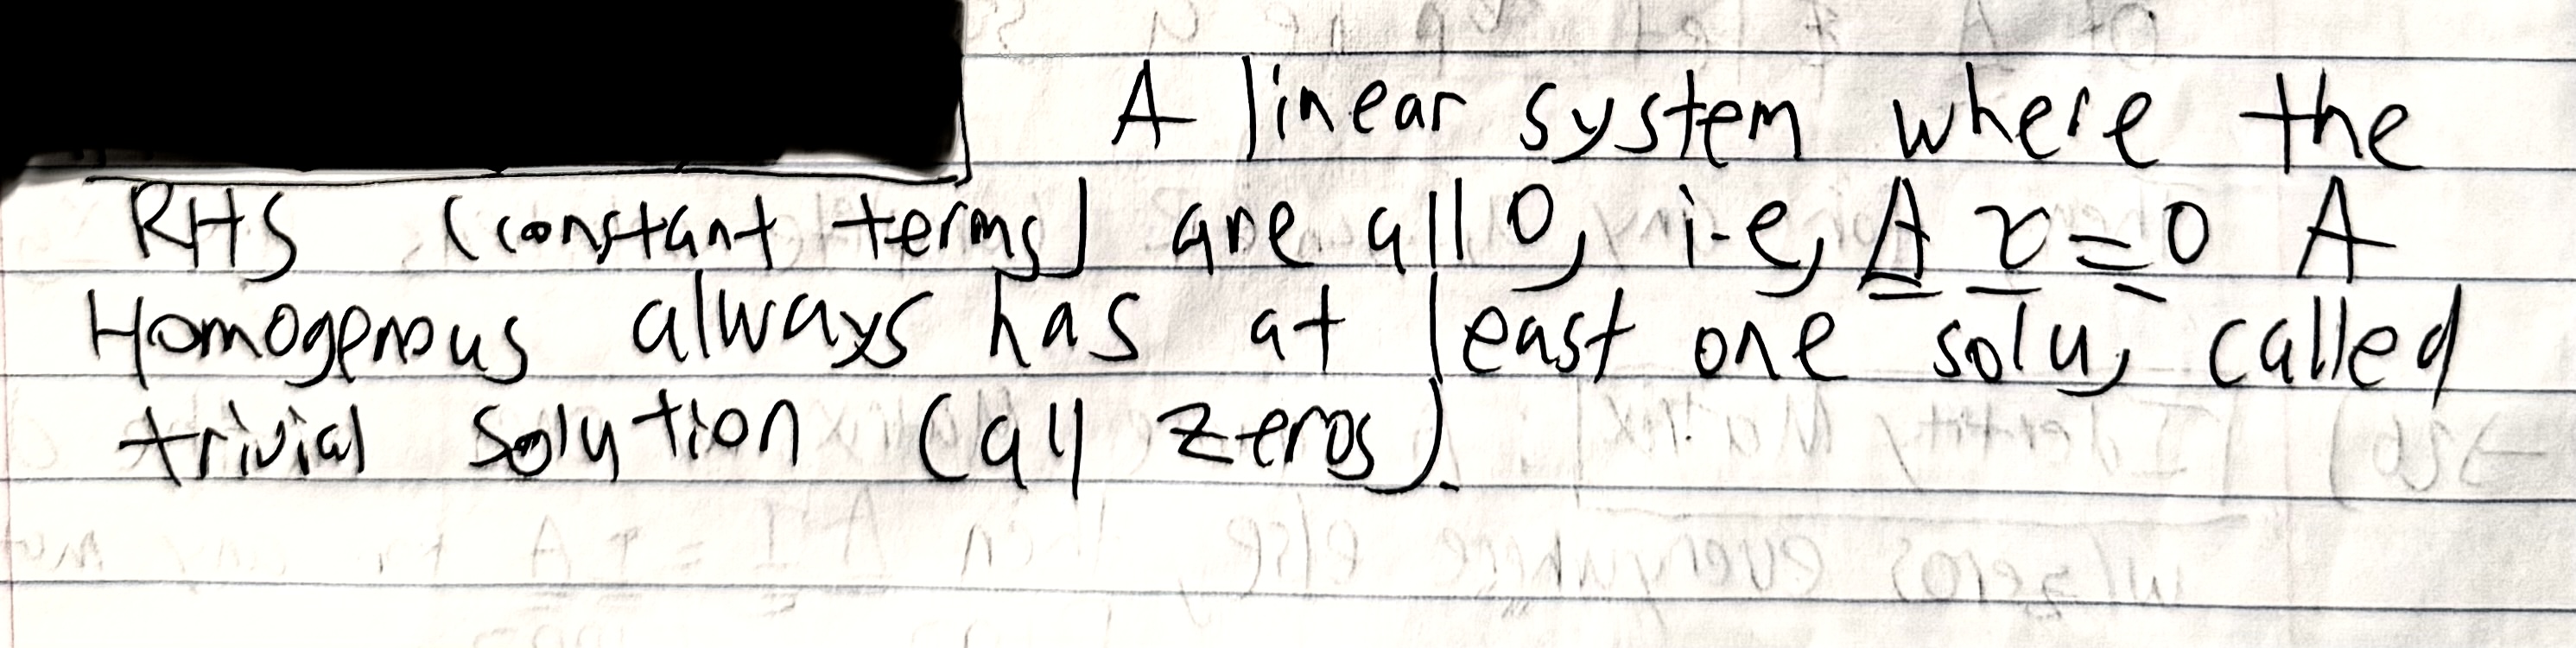 A linear system where the
RHS (constant terms) are all 0, i.e, A x = 0 A
Homogenous always has at least one solu, called
trivial solution (all zeros).